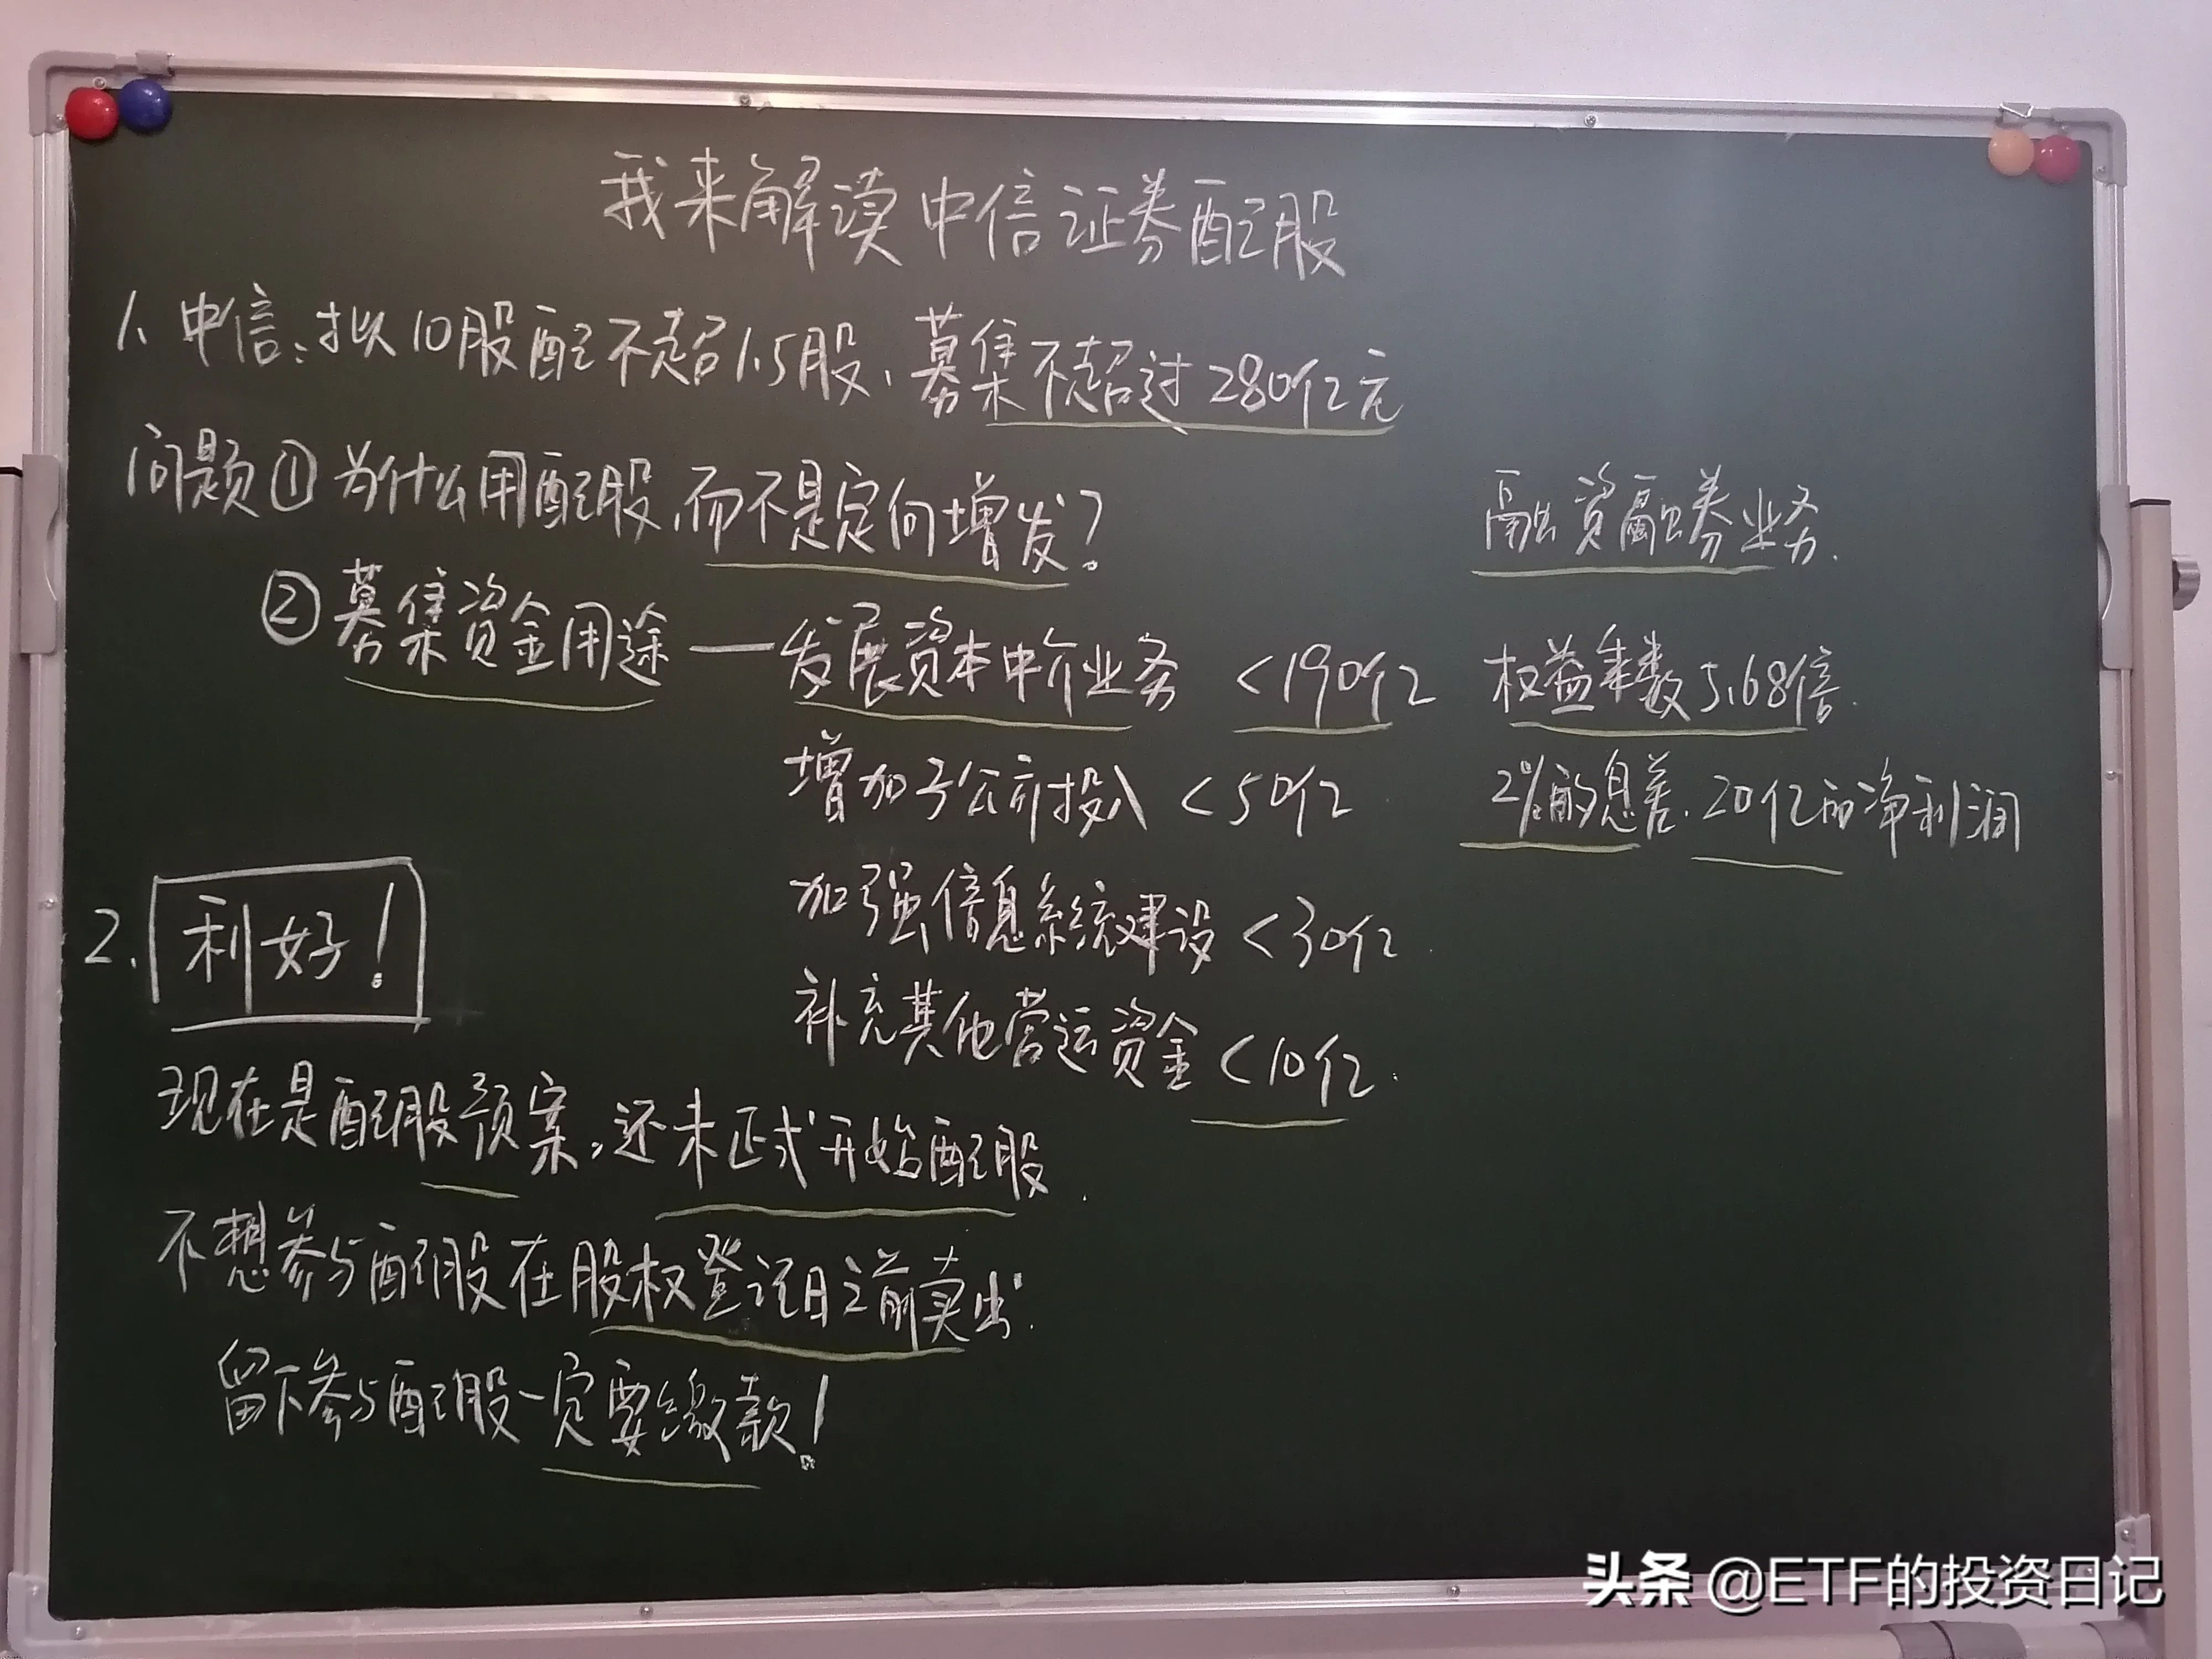 我来解读中信证券配股
1、中信:拟10股配不超1.5股,募集不超过280亿元
问题①为什么用配股,而不是定向增发?
融资融券业务.
②募集资金用途——发展资本中介业务 <190亿 权益乘数5.68倍.
增加子公司投入 <50亿 2%的息差.20亿的净利润
加强信息系统建设 <30亿
补充其他营运资金 <10亿.
2. 利好!
现在是配股预案,还未正式开始配股.
不想参与配股在股权登记日之前卖出.
留下参与配股一定要缴款!
头条 @ETF的投资日记